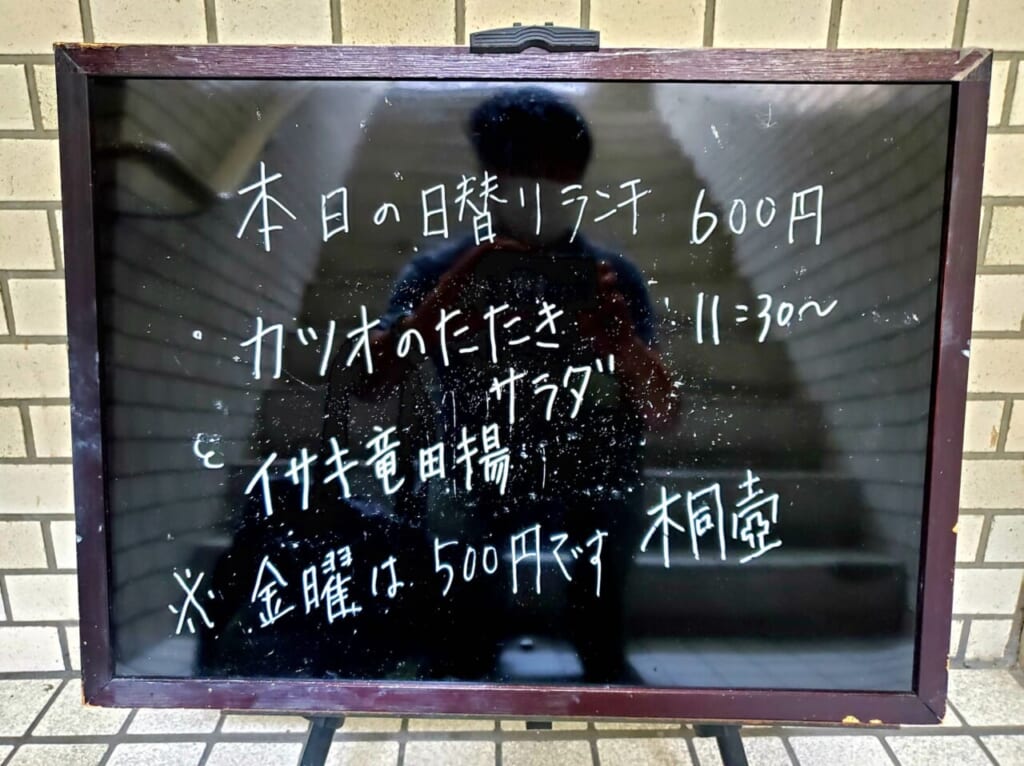 本日の日替りランチ 600円
。カツオのたたき 11:30〜
サラダ
と イサキ竜田揚
桐壺
※金曜は500円です